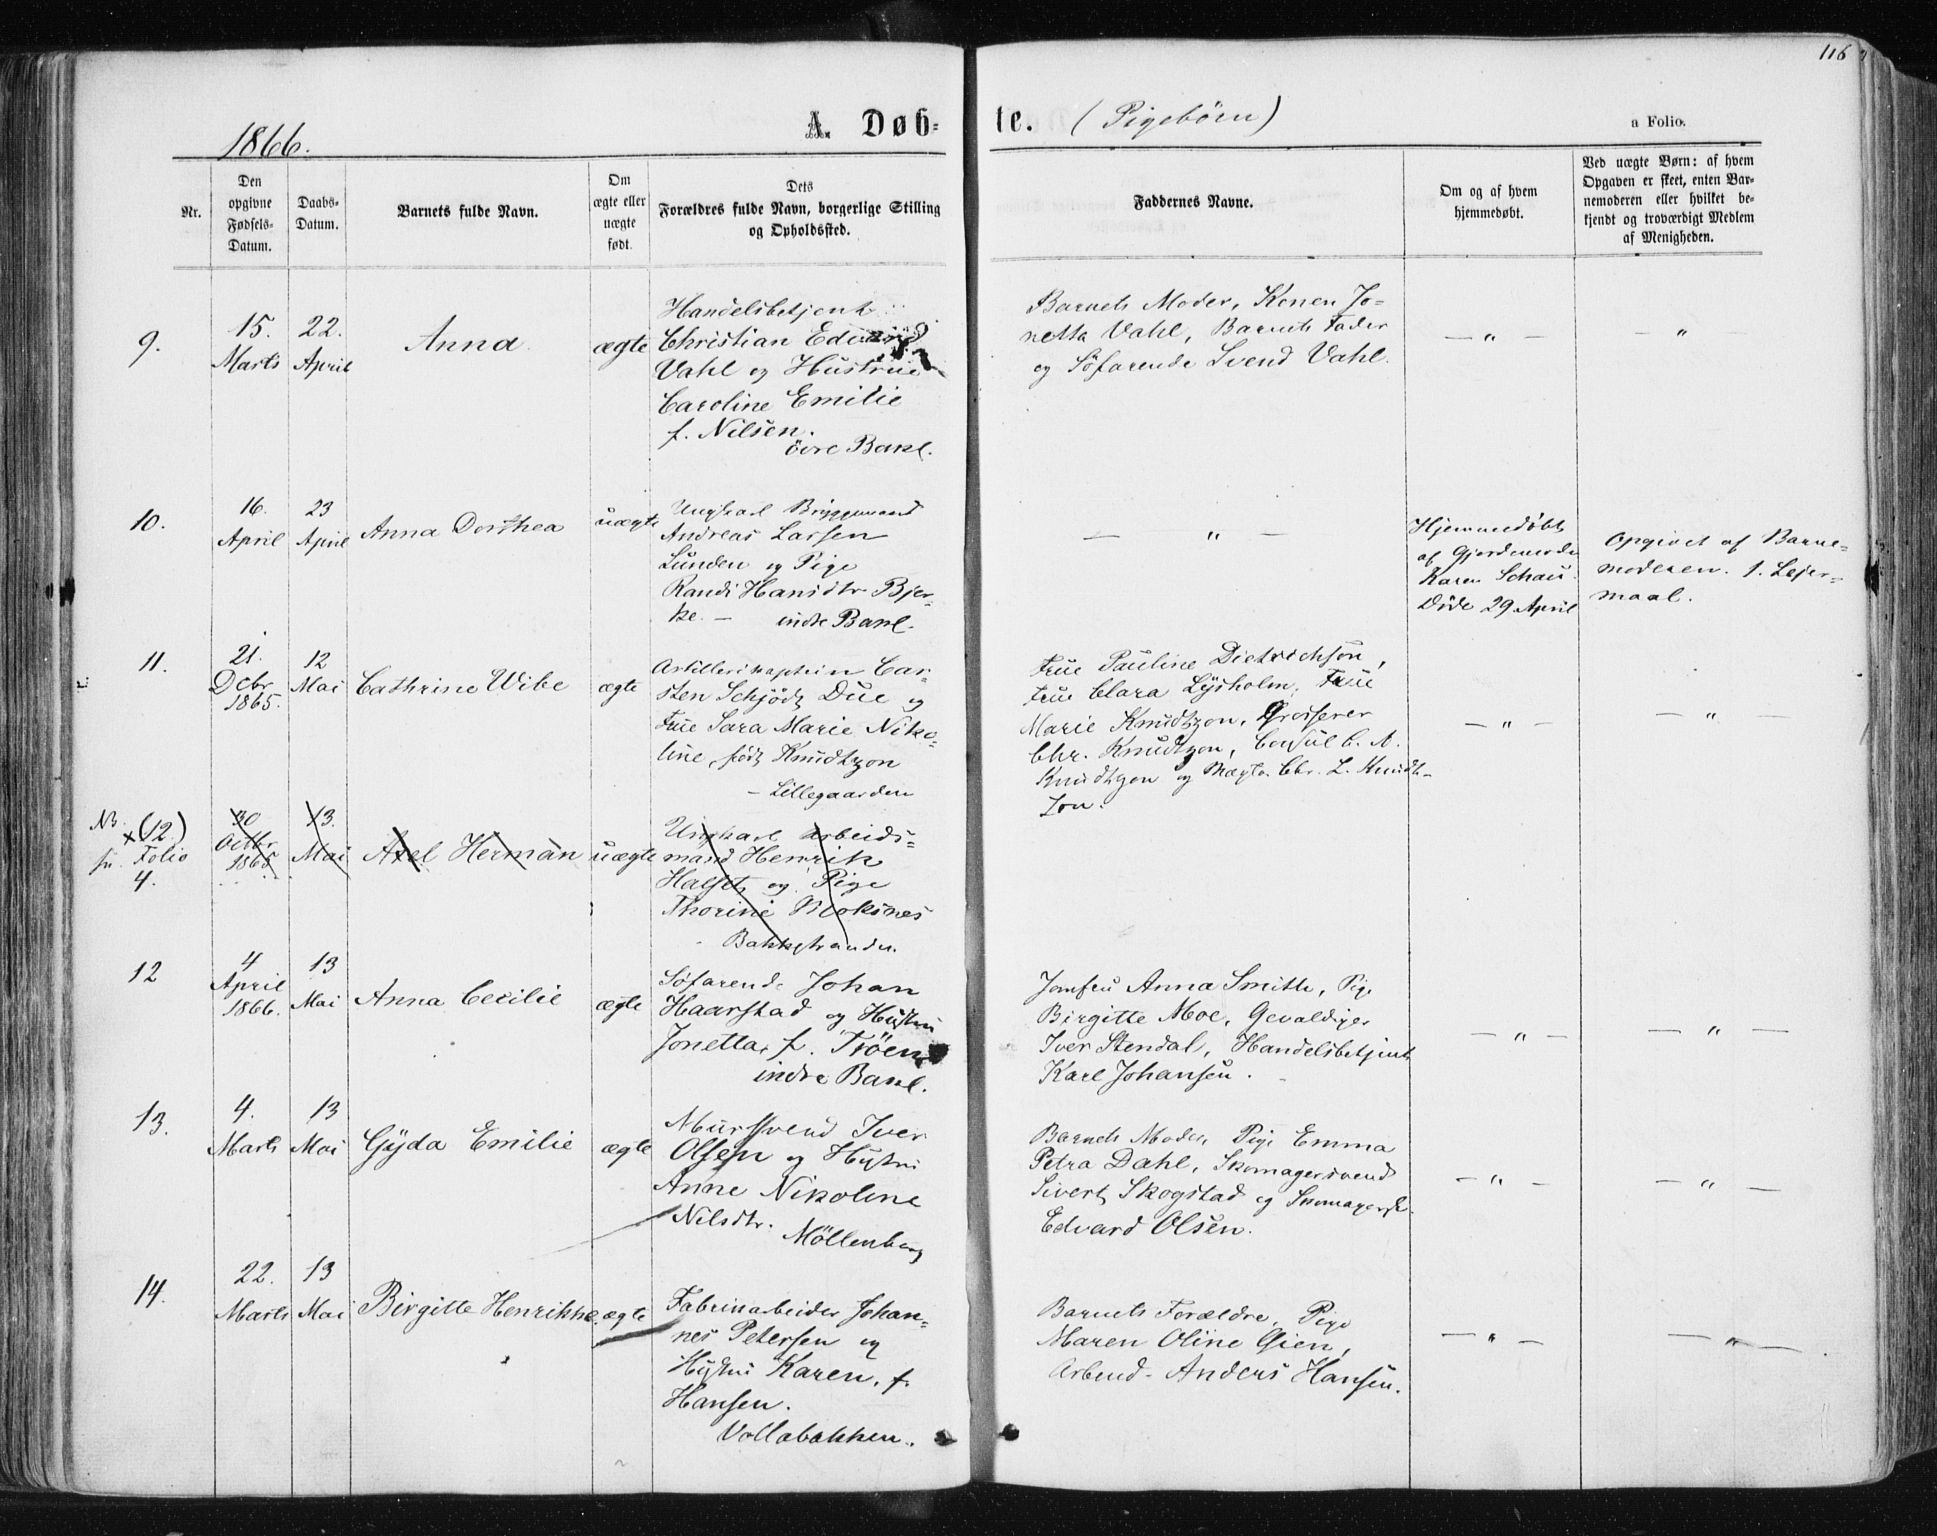 116
1866.
A. Døb-
te. (Pigebörn)
a Folio.
Nr.
Den
opgivne
Fødsels-
Datum.
Daabs-
Datum.
Barnets fulde Navn.
Om
ægte eller
uægte
født.
Dets
Forældres fulde Navn, borgerlige Stilling
og Opholdssted.
Faddernes Navne.
Om og af hvem
hjemmedøbt.
Ved uægte Børn: af hvem
Opgaven er skeet, enten Bar-
nemoderen eller hvilket be-
kjendt og troværdigt Medlem
af Menigheden.
9.
15.
Marts
22.
April
Anna
ægte
Handelsbetjent
Christian Edvard
Vahl og Hustrue
Caroline Emilie
f. Nilsen.
övre Bakl.
Barnets Moder, Konen Jo-
netta Vahl, Barnets Fader
og Söfarende Svend Vahl.
— „ —
— „
10.
16.
April
23
April
Anna Dorthea
uægte
Ungkarl Bryggemand
Andreas Larsen
Lunden og Pige
Randi Hansdtr Bjer-
ke. — indre Bakl.
— „ —
Hjemmedøbt
af Gjordemoder
Karen Schau.
Døde 29 April
Opgivet af Barne-
moderen. 1. Lejer-
maal.
11.
21.
Decbr
1865.
12
Mai
Cathrine Wibe
ægte
Artillerikaptein Car-
sten Schjödt Due og
Frue Sara Marie Niko-
line, født Knudtzon
- Lillegaarden
Frue Pauline Dietrichson,
Frue Clara Lysholm, Frue
Marie Knudtzon, Grosserer
Chr. Knudtzon, Consul C. A.
Knudtzon og Mægler Chr. L. Knudt-
zon.
— „ —
— „ —
NB.
x (12.)
Folio
4.
30
Octbr
1865
13.
Mai
Axel Herman
uægte
Ungkarl Arbeids-
mand Henrik
Halset og Pige
Thorine Moksnes
- Bakkestranden
12
4
April
1866.
13
Mai
Anna Cecilie
ægte
Söfarende Johan
Haarstad og Hustru
Jonetta, f. Tröen
indre Bakl.
Jomfru Anna Smith, Pige
Birgitte Moe, Gevaldiger
Iver Stendal, Handelsbetjent
Karl Johansen.
— „ —
— „ —
13.
4.
Marts
13
Mai
Gyda Emilie
ægte
Mursvend Iver
Olsen og Hustru
Anne Nikoline
Nilsdtr.
Möllenberg
Barnets Moder, Pige Emma
Petra Dahl, Skomagersvend
Sivert Skogstad og Skomagersv.
Edvard Olsen.
— „ —
— „ —
14.
22.
Marts
13
Mai
Birgitte Henrikke.
ægte
Fabrikarbeider Johan-
nes Petersen og
Hustru Karen, f.
Hansen.
Vollabakken.
Barnets Forældre, Pige
Maren Oline Gien,
Arbmd. Anders Hansen.
— „ —
— „ —